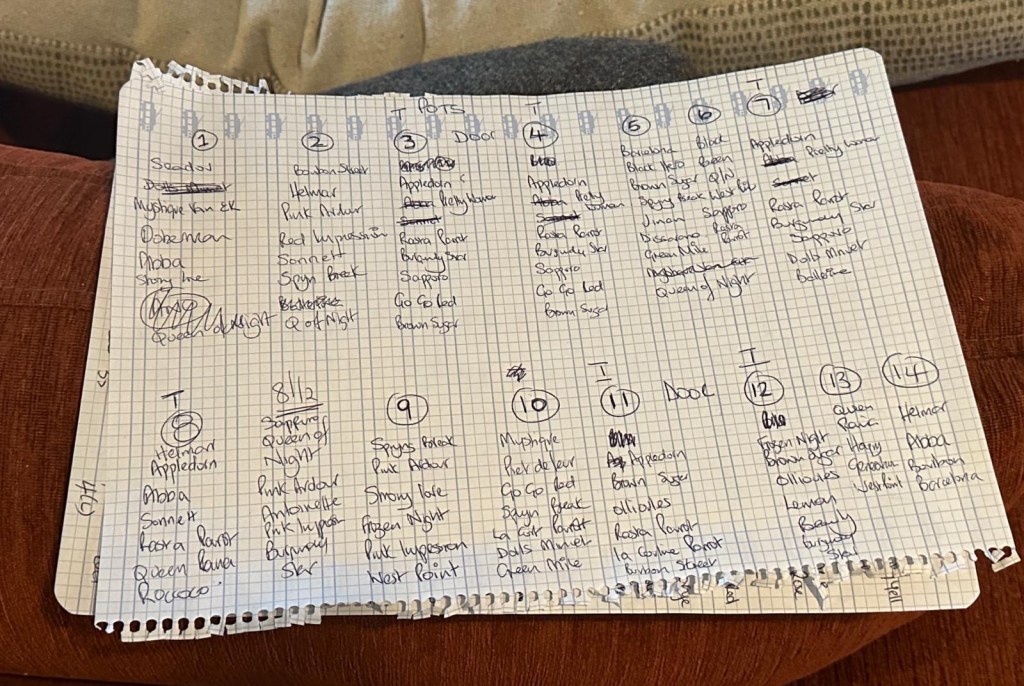 T POTS T T
1 2 3 Door 4 5 6 7
Seadov
Mystique Van Eÿk
Doberman
Abba
Strong love
Queen of Night
Bourbon Street
Helmar
Pink Ardour
Red Impression
Sonnett
Spyn Break
Q of Night
Appledorn
Pretty Woman
Rasta Parrot
Burgundy Star
Sapporo
Go Go Red
Brown Sugar
Appledorn
Pretty Woman
Rasta Parrot
Burgundy Star
Sapporo
Go Go Red
Brown Sugar
Barcelona
Black Hero
Brown Sugar
Spyng Break
Jimon
Green Mile
Queen of Night
Black
Q/N
West Point
Sapporo
Rasta
Parrot
Appledorn
Pretty Woman
Rasta Parrot
Burgundy Star
Sapporo
Dolls Minuet
Ballerina
T
8
Helmar
Appledorn
Abba
Sonnett
Rasta Parrot
Queen Rania
Rococo
8 1/2
Sapporo
Queen of
Night
Pink Ardour
Antoinette
Pink Impssn
Burgundy
Star
9
Spyng Break
Pink Ardour
Strong love
Frozen Night
Pink Impression
West Point
10
Mystique
Go Go Red
Spyn Break
La Cour Parrot
Dolls Minuet
Green Mile
T
11 Door
Appledorn
Brown Sugar
Ollioules
Rasta Parrot
la Courtine Parrot
Burbon Street
T
12
Frozen Night
Brown Sugar
Ollioules
Lemon
Beauty
Burgundy
Star
13
Queen
Rania
Harry
Westpoint
14
Helmar
Abba
Bourbon
Barcelona